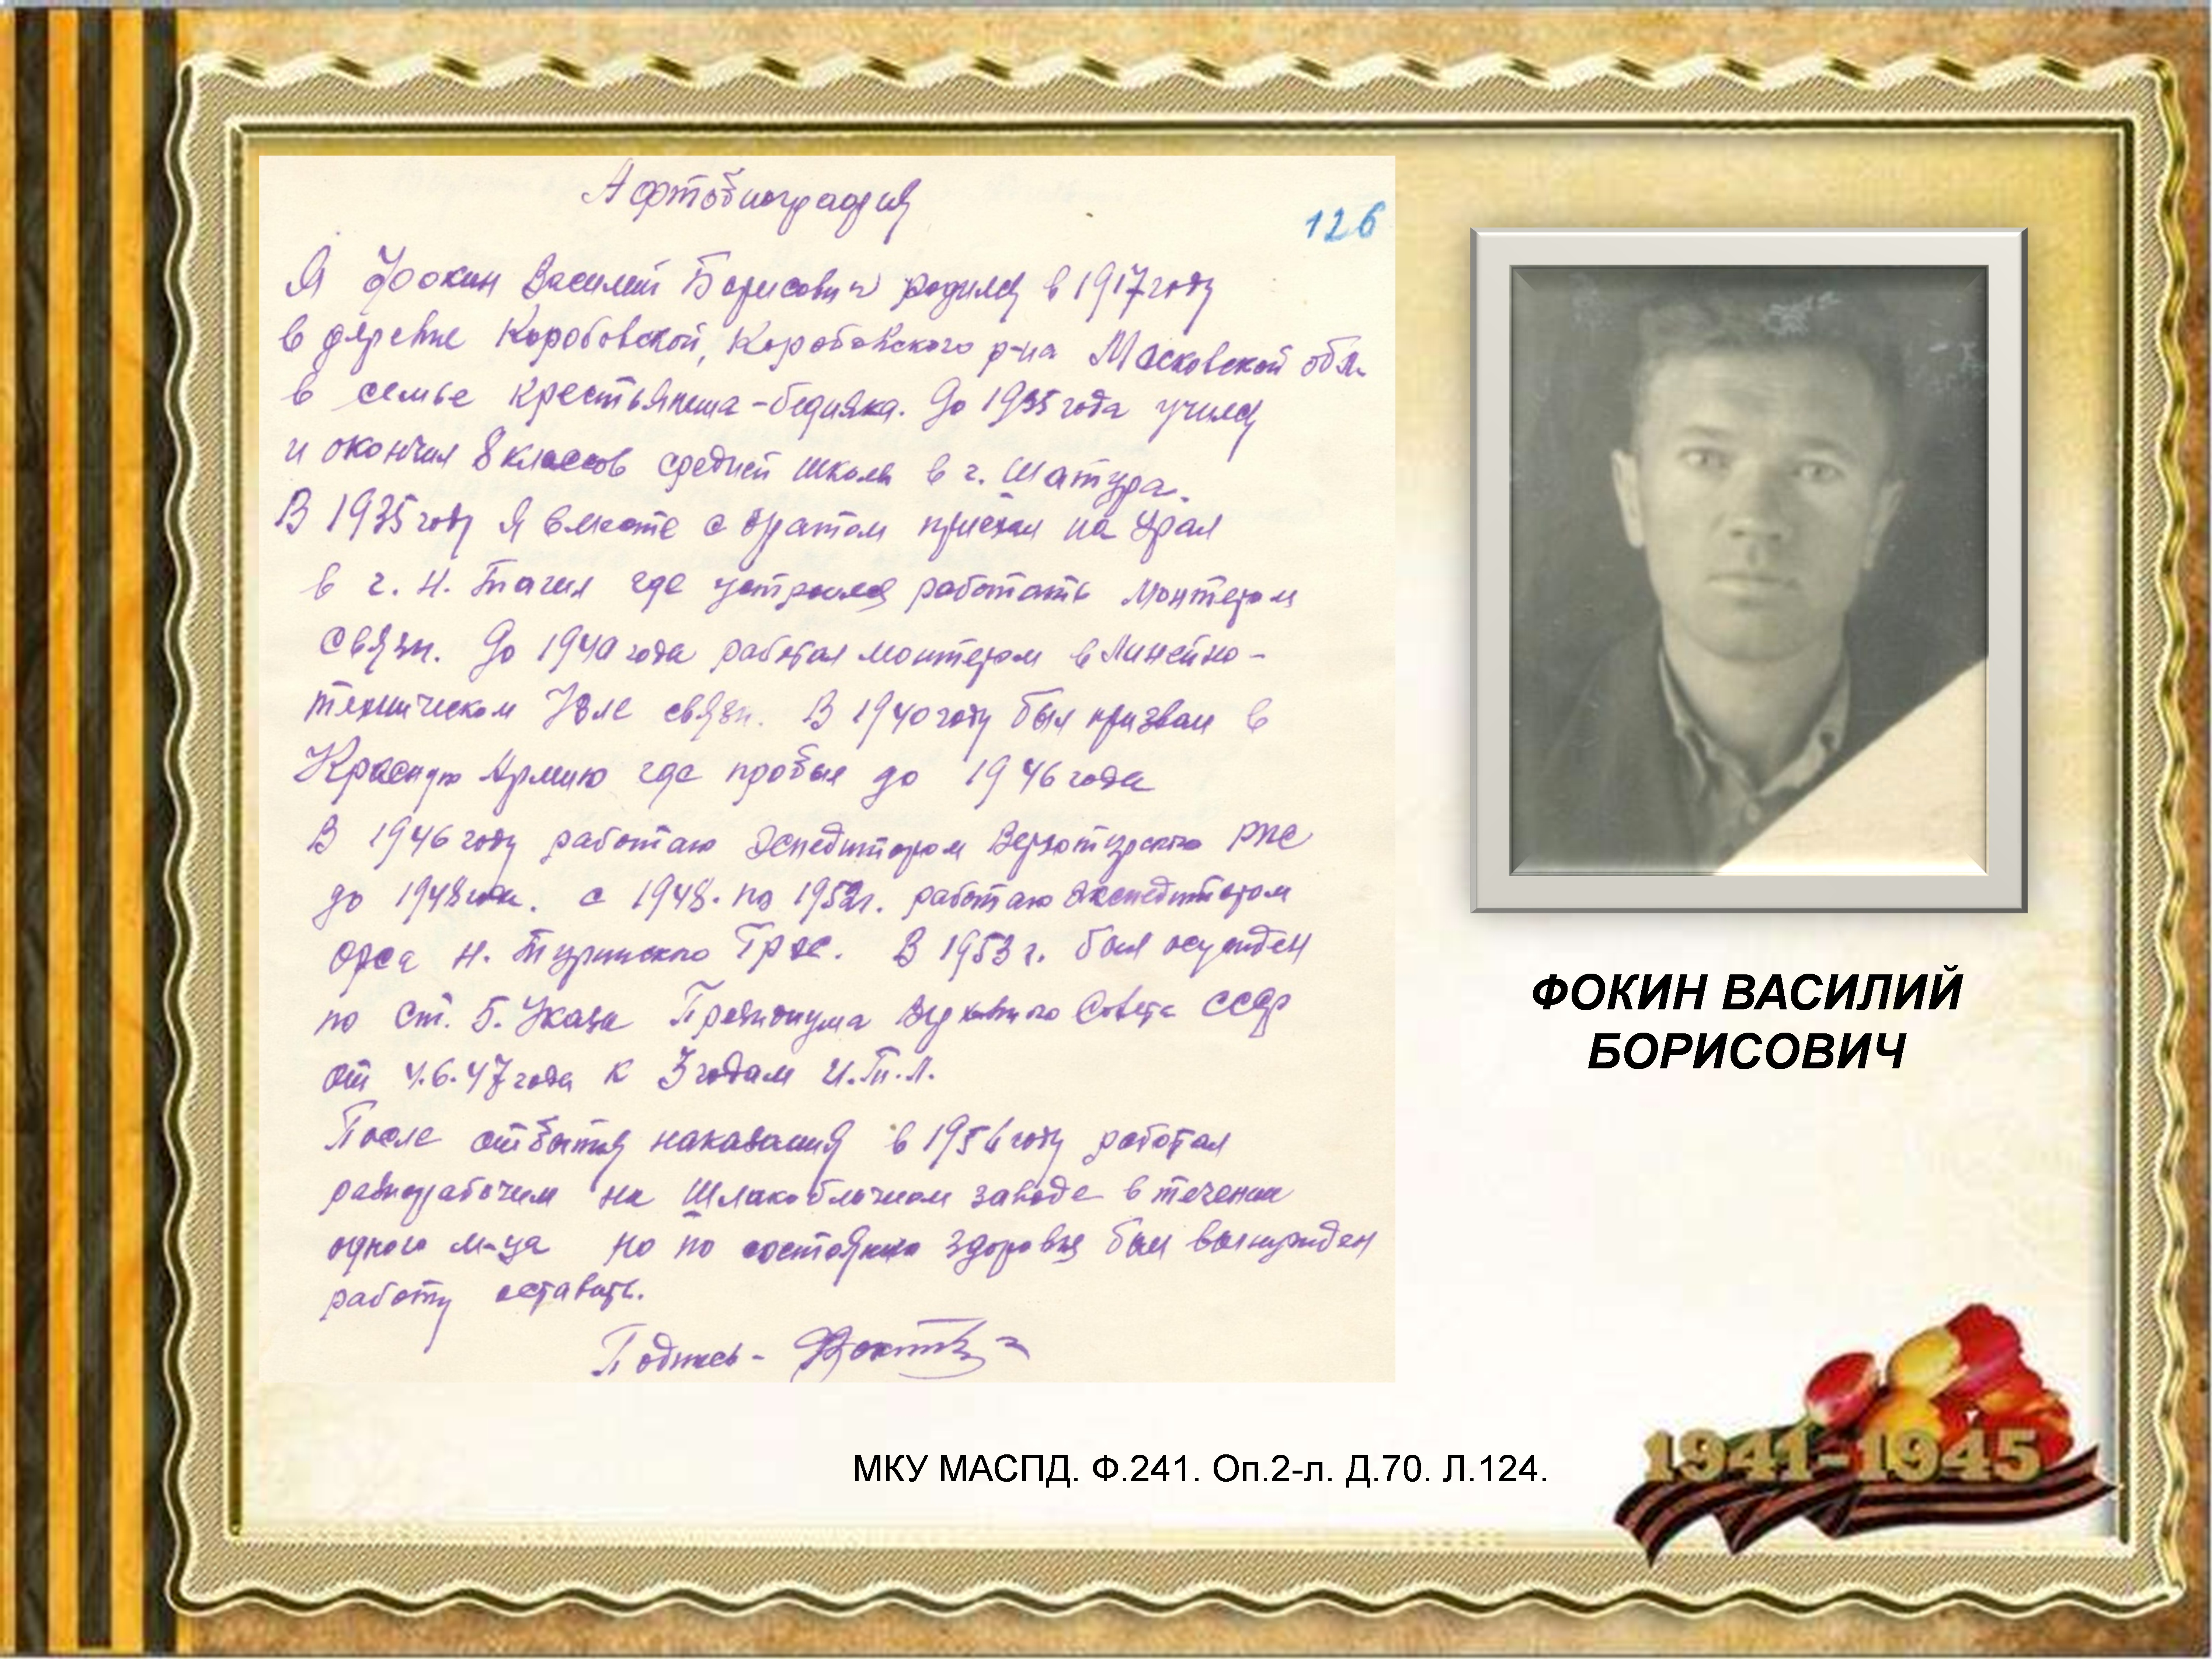 Афтобиография
126
Я Фокин Василий Борисович родился в 1917 году
в деревне Коробовской, Коробовского р-на Московской обл.
в семье крестьянина-бедняка. До 1935 года учился
и окончил 8 классов средней школы в г. Шатура.
В 1935 году я вместе с братом приехал на Урал
в г. Н. Тагил где устроился работать монтером
связи. До 1940 года работал монтером в Линейно-
техническом Узле связи. В 1940 году был призван в
Красную Армию где пробыл до 1946 года
В 1946 году работаю экспедитором Верхотурского РПС
до 1948 года. с 1948. по 1952г. работаю экспедитором
орса Н. Туринского Грэс. В 1953 г. был осужден
по Ст. 5. Указа Президиума Верховного Совета СССР
от 4.6.47 года к 3 годам И.Т.Л.
После отбытия наказания в 1956 году работал
разнорабочим на Шлакоблочном заводе в течении
одного м-ца но по состоянию здоровья был вынужден
работу оставить.
Подпись- Фокин
ФОКИН ВАСИЛИЙ
БОРИСОВИЧ
МКУ МАСПД. Ф.241. Оп.2-л. Д.70. Л.124.
1941-1945